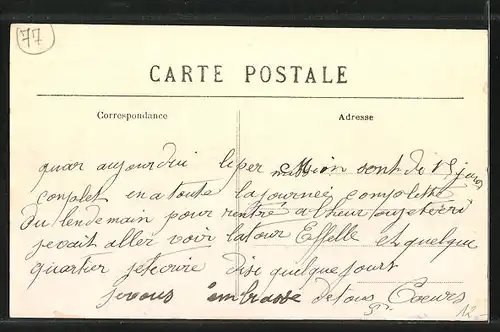 77
CARTE POSTALE
Correspondance
Adresse
quar aujourdui le per mission sont de 15 jours
conplet en a toute la journeé conplette
du lendemain pour rentré a lheur ou je técri
je vait aller voir la tour Effelle et quelque
quartier je técrire dise quelque jourt
je vous embrasse de tous Coeurs
12-